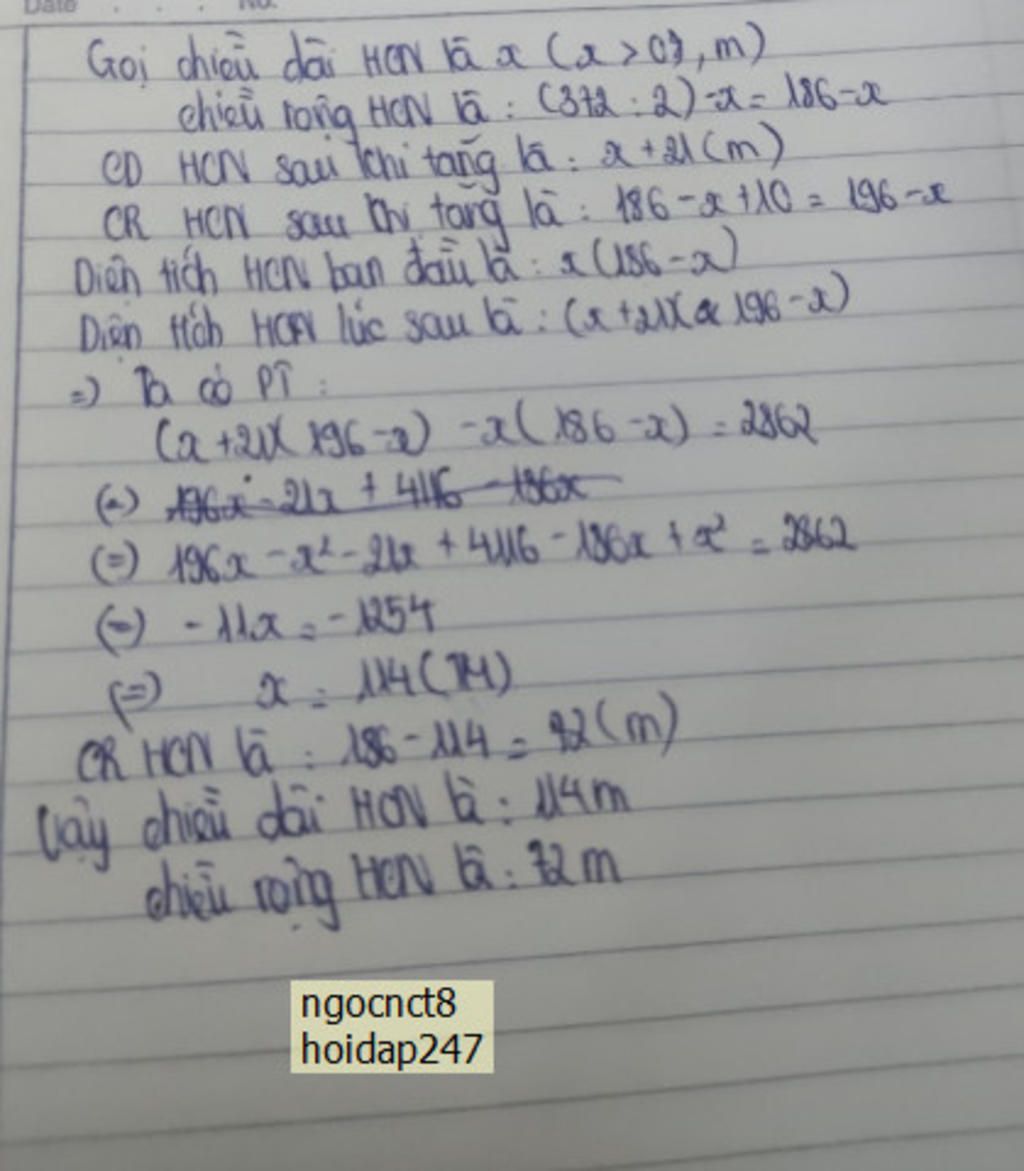 Date . . . No.
Gọi chiều dài HCN là x (x > 0, m)
chiều rộng HCN là : (372 : 2) - x = 186 - x
CD HCN sau khi tăng là : x + 21 (m)
CR HCN sau khi tăng là : 186 - x + 10 = 196 - x
Diện tích HCN ban đầu là : x (186 - x)
Diện tích HCN lúc sau là : (x + 21)( 196 - x)
=) Ta có PT :
(x + 21)( 196 - x) - x ( 186 - x) = 2862
(=) 196x - 21x + 4116 - 186x
(=) 196x - x² - 21x + 4116 - 186x + x² = 2862
(=) - 11x = - 1254
(=) x = 114 (TM)
CR HCN là : 186 - 114 = 72 (m)
Vậy chiều dài HCN là : 114 m
chiều rộng HCN là : 72 m
ngocnct8
hoidap247